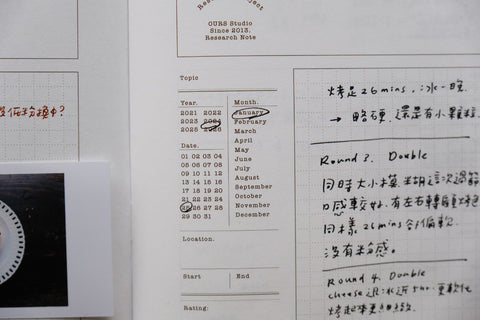 OURS Studio
Since 2013.
Research Note
Topic
Year.
2021 2022
2023 2024
2025 2026
Date.
01 02 03 04
05 06 07 08
09 10 11 12
13 14 15 16
17 18 19 20
21 22 23 24
25 26 27 28
29 30 31
Month.
January
February
March
April
May
June
July
August
September
October
November
December
Location.
Start
End
Rating:
烤足26mins,冰一晚
→ 略硬,還是有小顆粒
Round 3. Double
同時大小模,
口感較好,有左右轉
同樣26mins 偏軟
沒有粉感。
Round 4. Double
cheese退冰近5hr,更軟化
烤起來更細緻